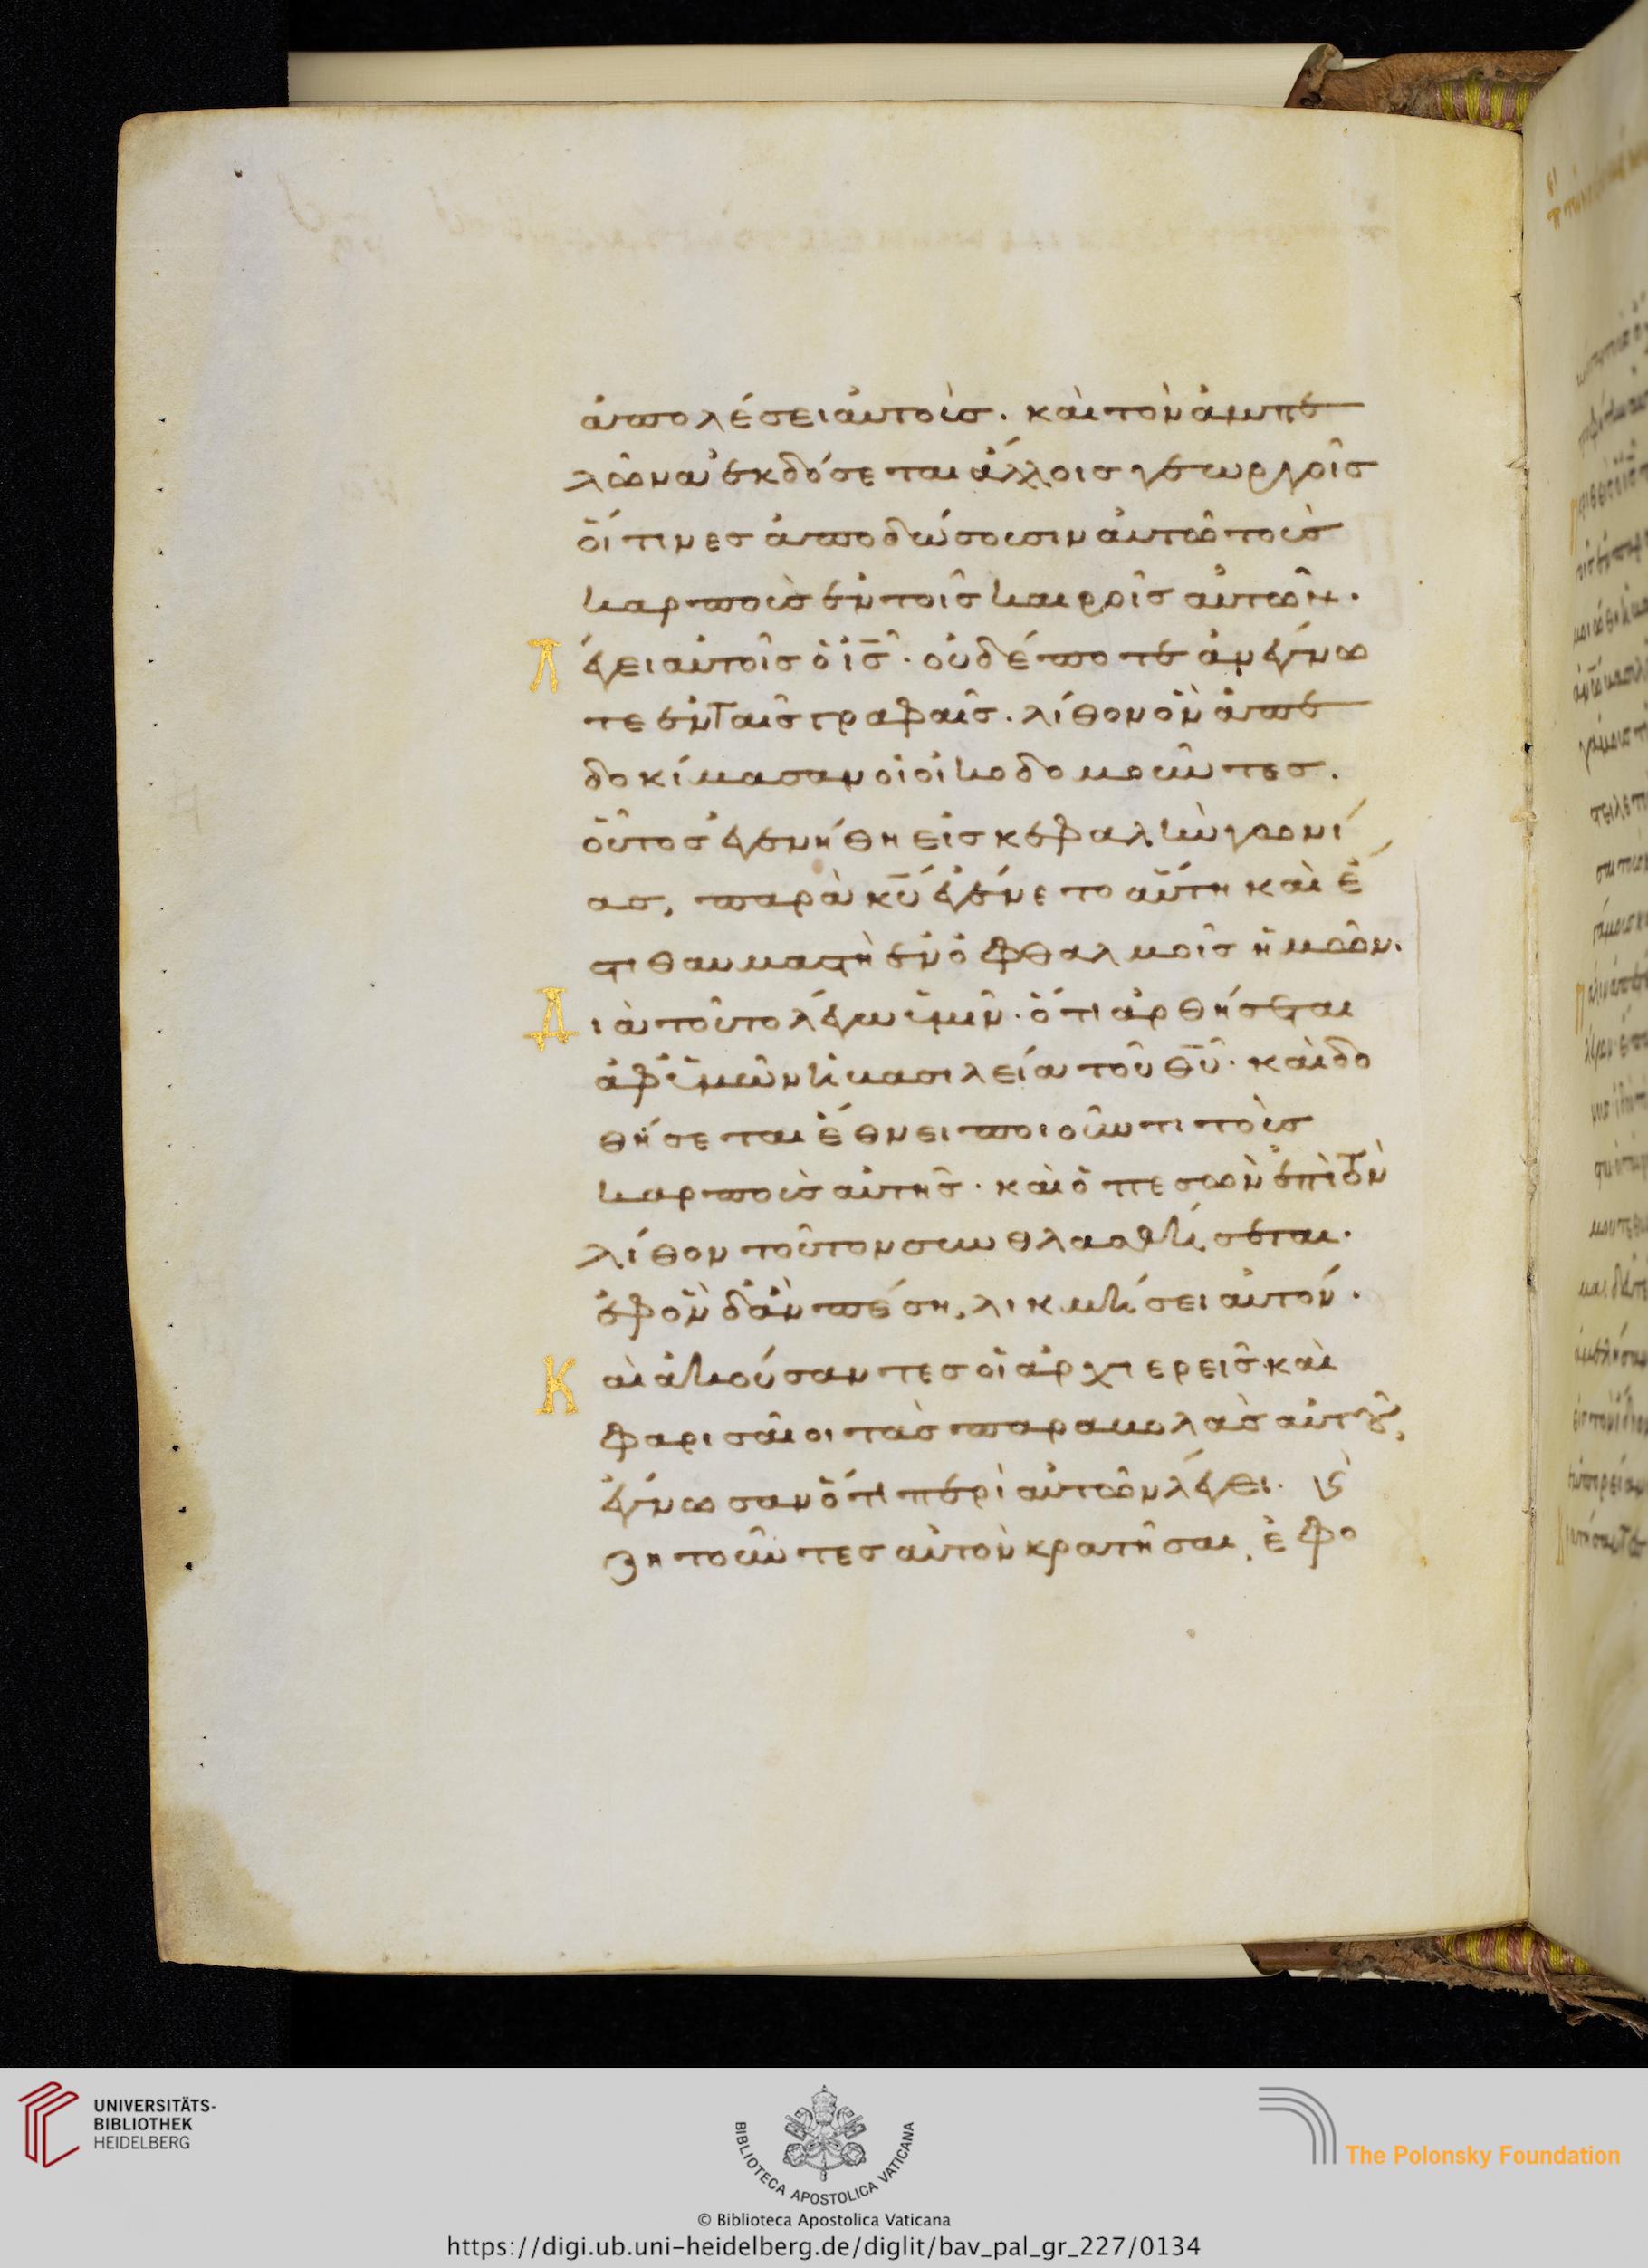 ἀπολέσει αὐτούς. καὶ τὸν ἀμπε
λῶνα ἐκδόσεται ἄλλοις γεωργοῖς
οἵτινες ἀποδώσουσιν αὐτῶ τοὺς
καρποὺς ἐν τοῖς καιροῖς αὐτῶν.
Λέγει αὐτοῖς ὁ ις̅. οὐδέποτε ἀνέγνω
τε ἐν ταῖς γραφαῖς. λίθον ὃν ἀπε
δοκίμασαν οἱ οἰκοδομοῦντες.
οὗτος ἐγενήθη εἰς κεφαλὴν γωνί
ας, παρὰ κυ̅ ἐγένετο αὕτη καὶ ἔ
στι θαυμαστὴ ἐν ὀφθαλμοῖς ἡμῶν.
Διὰ τοῦτο λέγω ὑμῖν. ὅτι ἀρθήσεται
ἀφ ὑμῶν ἡ βασιλεία τοῦ θυ̅. καὶ δο
θήσεται ἔθνει ποιοῦντι τοὺς
καρποὺς αὐτῆς. καὶ ὁ πεσὼν ἐπὶ τὸν
λίθον τοῦτον συνθλασθήσεται.
ἐφ ὃν δ ἂν πέση, λικμήσει αὐτόν.
Καὶ ἀκούσαντες οἱ ἀρχιερεῖς καὶ
φαρισαῖοι τὰς παραβολὰς αὐτοῦ,
ἔγνωσαν ὅτι περὶ αὐτῶν λέγει. ϗ
ζητοῦντες αὐτὸν κρατῆσαι, ἐφο
UNIVERSITÄTS-
BIBLIOTHEK
HEIDELBERG
BIBLIOTECA APOSTOLICA VATICANA
The Polonsky Foundation
© Biblioteca Apostolica Vaticana
https://digi.ub.uni-heidelberg.de/diglit/bav_pal_gr_227/0134